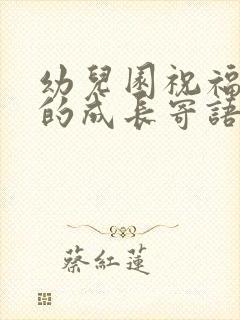 幼兒園祝福
的成長寄語
蔡紅蓮